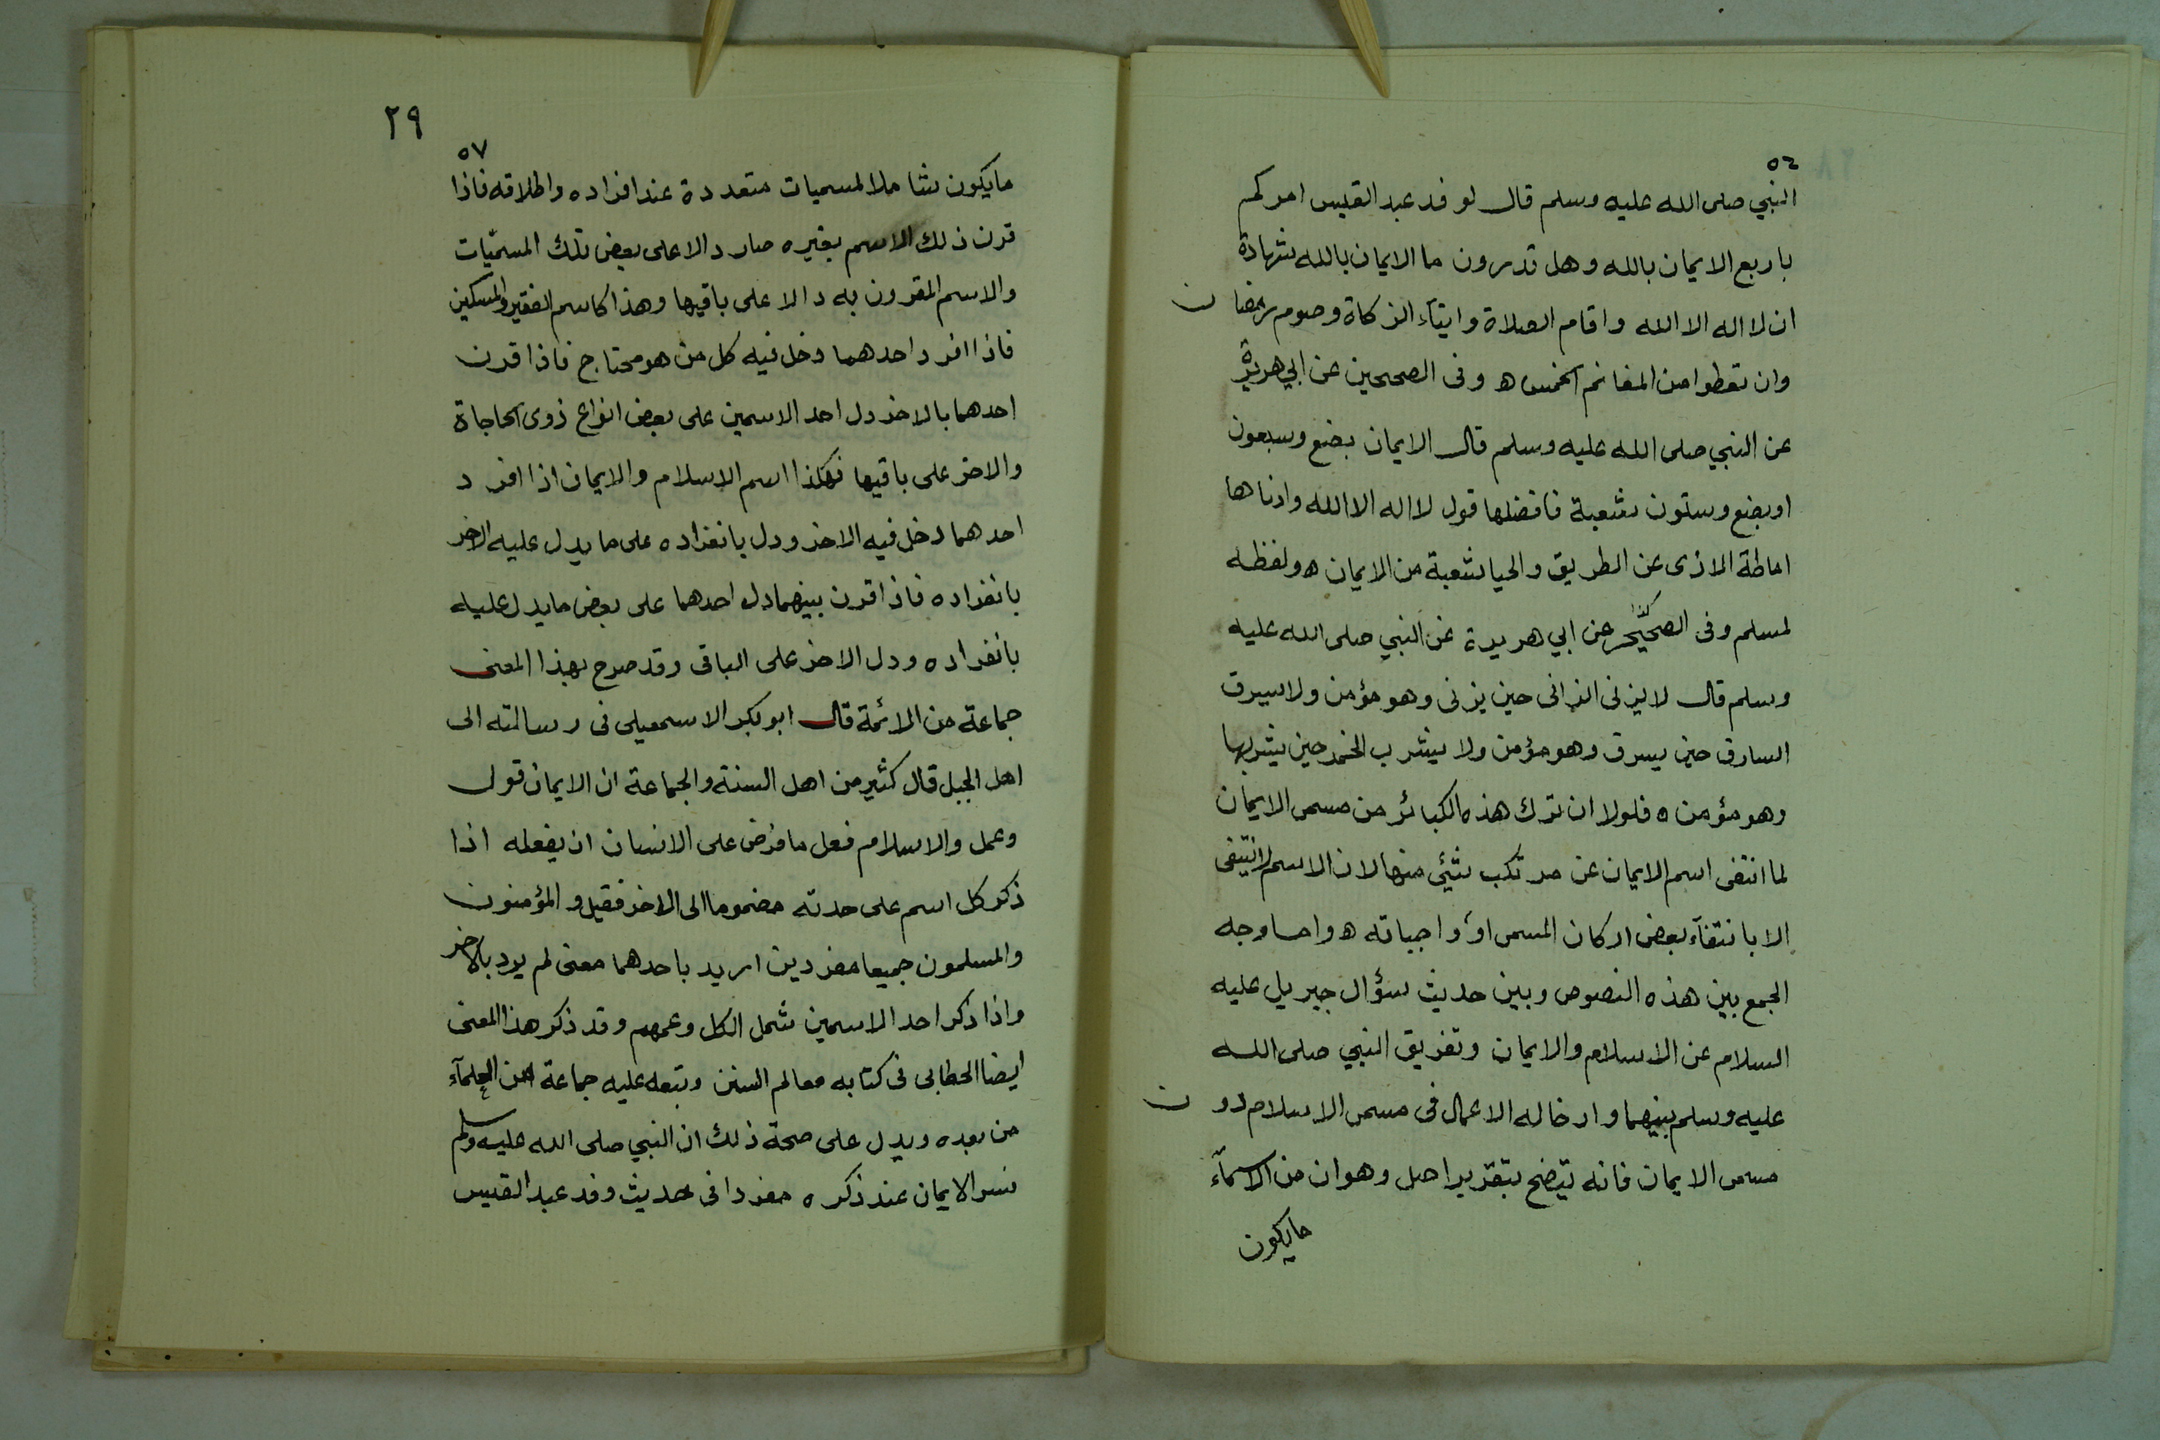 ٥٦
النبي صلى الله عليه وسلم قال لوفد عبد القيس امركم
باربع الايمان بالله وهل تدرون ما الايمان بالله شهادة
ان لا اله الا الله واقام الصلاة وايتآء الزكاة وصوم رمضان
وان تعطوا من المغانم الخمس ه وفى الصحيحين عن ابي هريرة
عن النبي صلى الله عليه وسلم قال الايمان بضع وسبعون
او بضع وستون شعبة فافضلها قول لا اله الا الله وادناها
اماطة الاذى عن الطريق والحيا شعبة من الايمان ه ولفظه
لمسلم وفى عن ابي هريرة عن النبي صلى الله عليه
وسلم قال لا يزنى الزانى حين يزنى وهو مؤمن ولا يسرق
السارق حين يسرق وهو مؤمن ولا يشرب الخمر حين يشربها
وهو مؤمن ه فلولا ان ترك هذه الكبائر من مسمى الايمان
لما انتفى اسم الايمان عن مرتكب شيئ منها لان الاسم لا ينتفى
الا بانتفآء بعض اركان المسمى او واجباته ه واما وجه
الجمع بين هذه النصوص وبين حديث سؤال جبريل عليه
السلام عن الاسلام والايمان وتفريق النبي صلى الله
عليه وسلم بينهما وادخاله الاعمال فى مسمى الاسلام دون
مسمى الايمان فانه يتضح بتقرير اصل وهو ان من الاسمآء
مايكون
٢٩
٥٧
مايكون شاملا لمسميات متعددة عند افراده واطلاقه فاذا
قرن ذلك الاسم بغيره صار دالا على بعض تلك المسميّات
والاسم المقرون به دالا على باقيها وهذا كاسم الفقير والمسكين
فاذا افرد احدهما دخل فيه كل من هو محتاج فاذا قرن
احدهما بالاخر دل احد الاسمين على بعض انواع ذوى الحاجاة
والاخر على باقيها فهكذا اسم الاسلام والايمان اذا افرد
احدهما دخل فيه الاخر ودل بانفراده على ما يدل عليه الاخر
بانفراده فاذا قرن بينهما دل احدهما على بعض ما يدل عليه
بانفراده ودل الاخر على الباقى وقد صرح بهذا المعنى
جماعة من الائمة قال ابو بكر الاسمعيلى فى رسالته الى
اهل الجبل قال كثير من اهل السنة والجماعة ان الايمان قول
وعمل والاسلام فعل ما فرض على الانسان ان يفعله اذا
ذكر كل اسم على حدته مضموما الى الاخر فقيل والمؤمنون
والمسلمون جميعا مفردين اريد باحدهما معنى لم يرد بالاخر
واذا ذكر احد الاسمين شمل الكل وعمهم وقد ذكر هذا المعنى
ايضا الخطابى فى كتابه معالم السنن وتبعه عليه جماعة من العلمآء
من بعده ويدل على صحة ذلك ان النبي صلى الله عليه وسلم
فسر الايمان عند ذكره مفردا فى حديث وفد عبد القيس